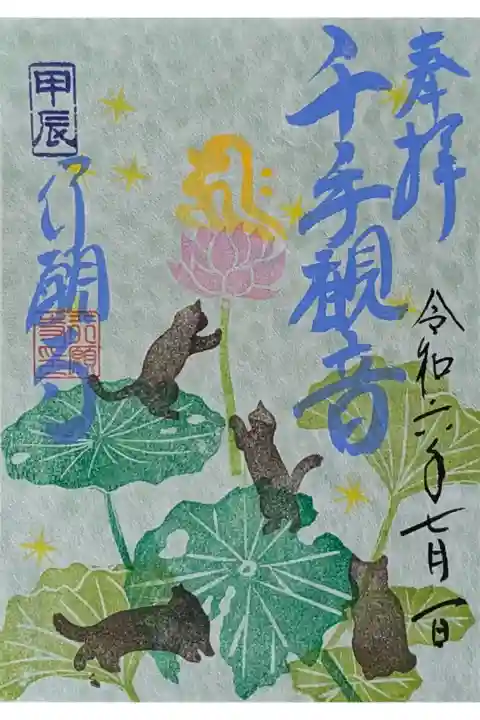 奉拝
千手観音
令和六年七月一日
甲辰
行願寺
行願
寺印